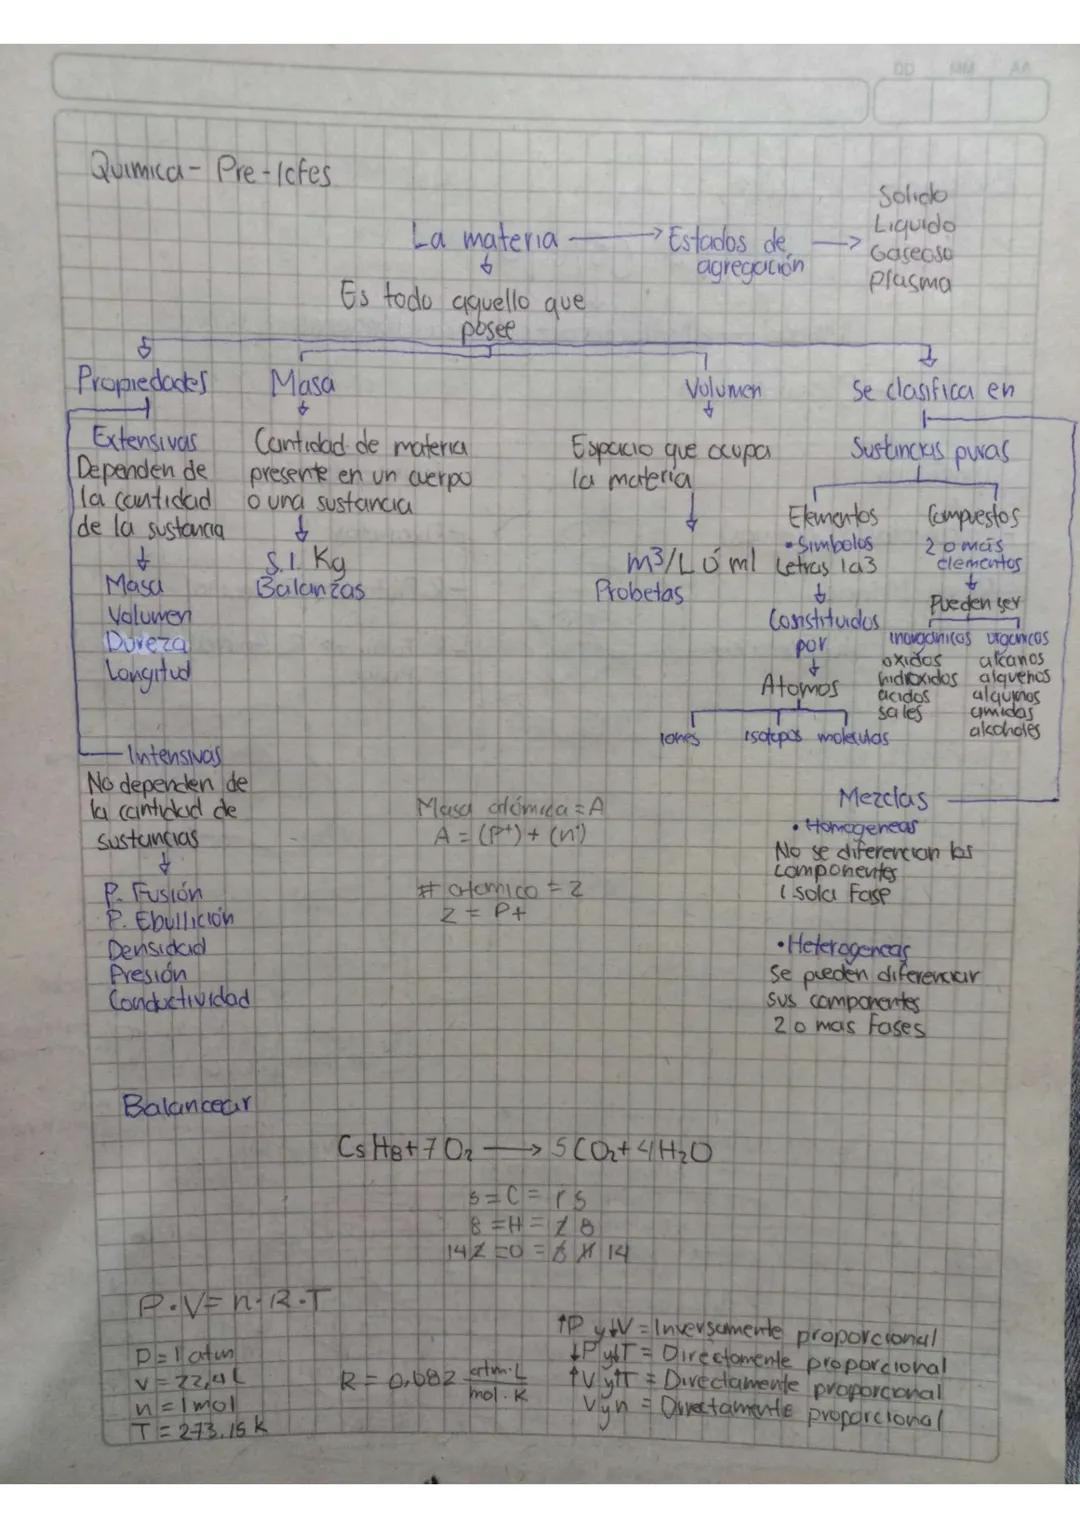 DD MM AA
Química - Pre-Icfes
La materia → Estados de agregación →
Solido
Liquido
Gaseoso
Plasma
Es todo aquello que
posee
Propiedades
Extensivas
Dependen de
la cantidad
de la sustancia
Masa
Volumen
Dureza
Longitud
Intensivas
No dependen de
la cantidad de
sustancias
P. Fusión
P. Ebullición
Densidad
Presión
Conductividad
Masa
Cantidad de materia
presente en un cuerpo
o una sustancia
S.I. Kg
Balanzas
Volumen
Espacio que ocupa
la materia
m³/L ó ml
Probetas
Se clasifica en
Sustancias puras
Elementos
• Simbolos
Letras 1a3
Constituidos
por
Atomos
Iones isotopos moleculas
Compuestos
2 o más
elementos
Pueden ser
inorganicos
oxidos
hidroxidos
acidos
sales
organicos
alcanos
alquenos
alquinos
amidas
alcoholes
Mezclas
• Homogeneas
No se diferencian los
componentes
1 sola Fase
• Heterogeneas
Se pueden diferenciar
sus componentes
2 o mas Fases
Masa atómica = A
A = (P+) + (n°)
# atomico = Z
Z = P+
Balancear
C5H8 + 7O2 → 5CO2 + 4H2O
5 = C = 1 5
8 = H = 2 8
14 2 = O = 14
P·V = n·R·T
P = 1 atm
V = 22,4 L
n = 1 mol
T = 273.15 K
R = 0,082 atm·L / mol·K
↑P y ↓V = Inversamente proporcional
↓P y ↓T = Directamente proporcional
↑V y ↑T = Directamente proporcional
V y n = Directamente proporcional